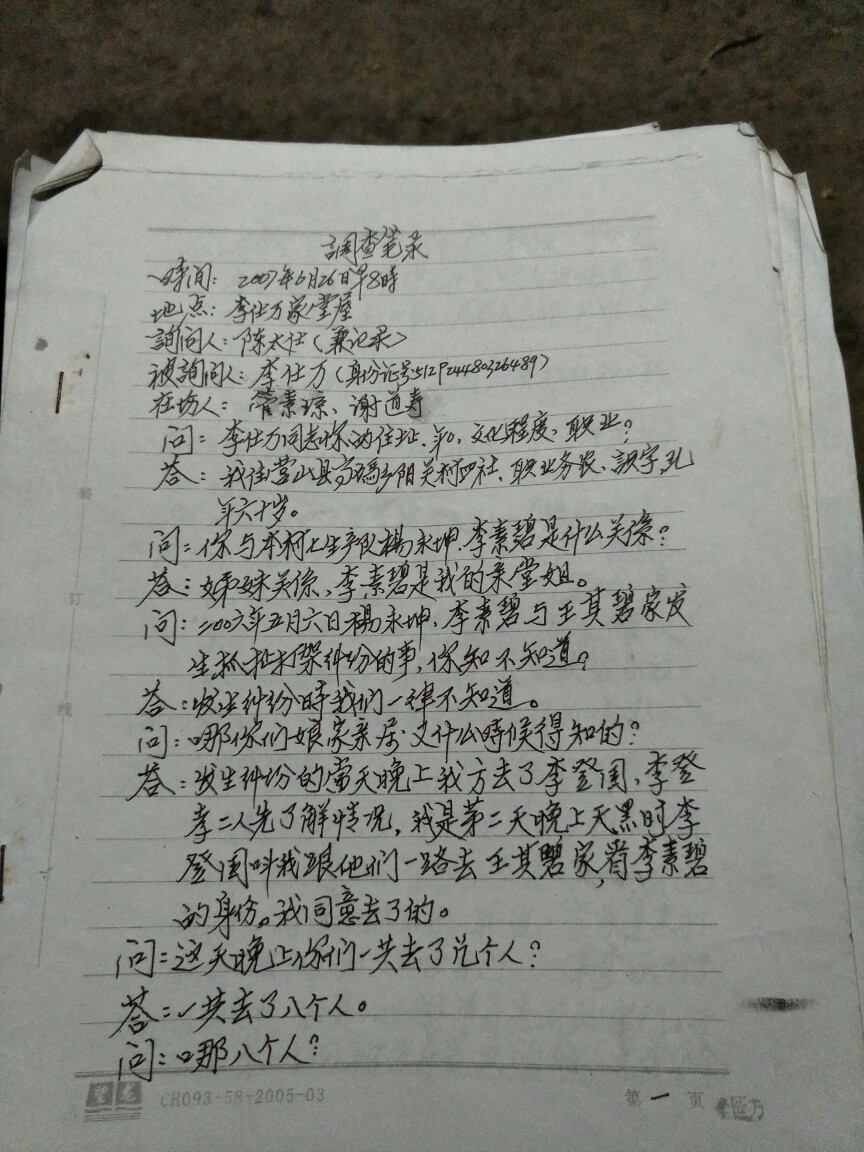 調查笔录
時间：2007年6月26日早8時
地点：李仕万家堂屋
詢问人：陈太仕（兼记录）
被詢问人：李仕万（身份证号512924480326489）
在场人：管素琼、谢道寿
问：李仕万同志你的住址、年、文化程度、职业？
答：我住营山县高码乡阳关村四社、职业务农、識字、
年六十岁。
问：你与本村七生产队楊永坤、李素碧是什么关係？
答：姊妹关係，李素碧是我的亲堂姐。
问：二00六年五月六日楊永坤、李素碧与王其碧家发
生抓扯打架纠纷的事，你知不知道？
答：发生纠纷时我们一律不知道。
问：哪你们娘家亲属又什么時候得知的？
答：发生纠纷的當天晚上我方去了李登国、李登
孝二人先了解情况，我是第二天晚上天黑时李
登国叫我跟他们一路去王其碧家，看李素碧
的身份。我同意去了的。
问：这天晚上你们一共去了几个人？
答：一共去了八个人。
问：哪八个人？
CH093-58-2005-03
第一页
装
订
线